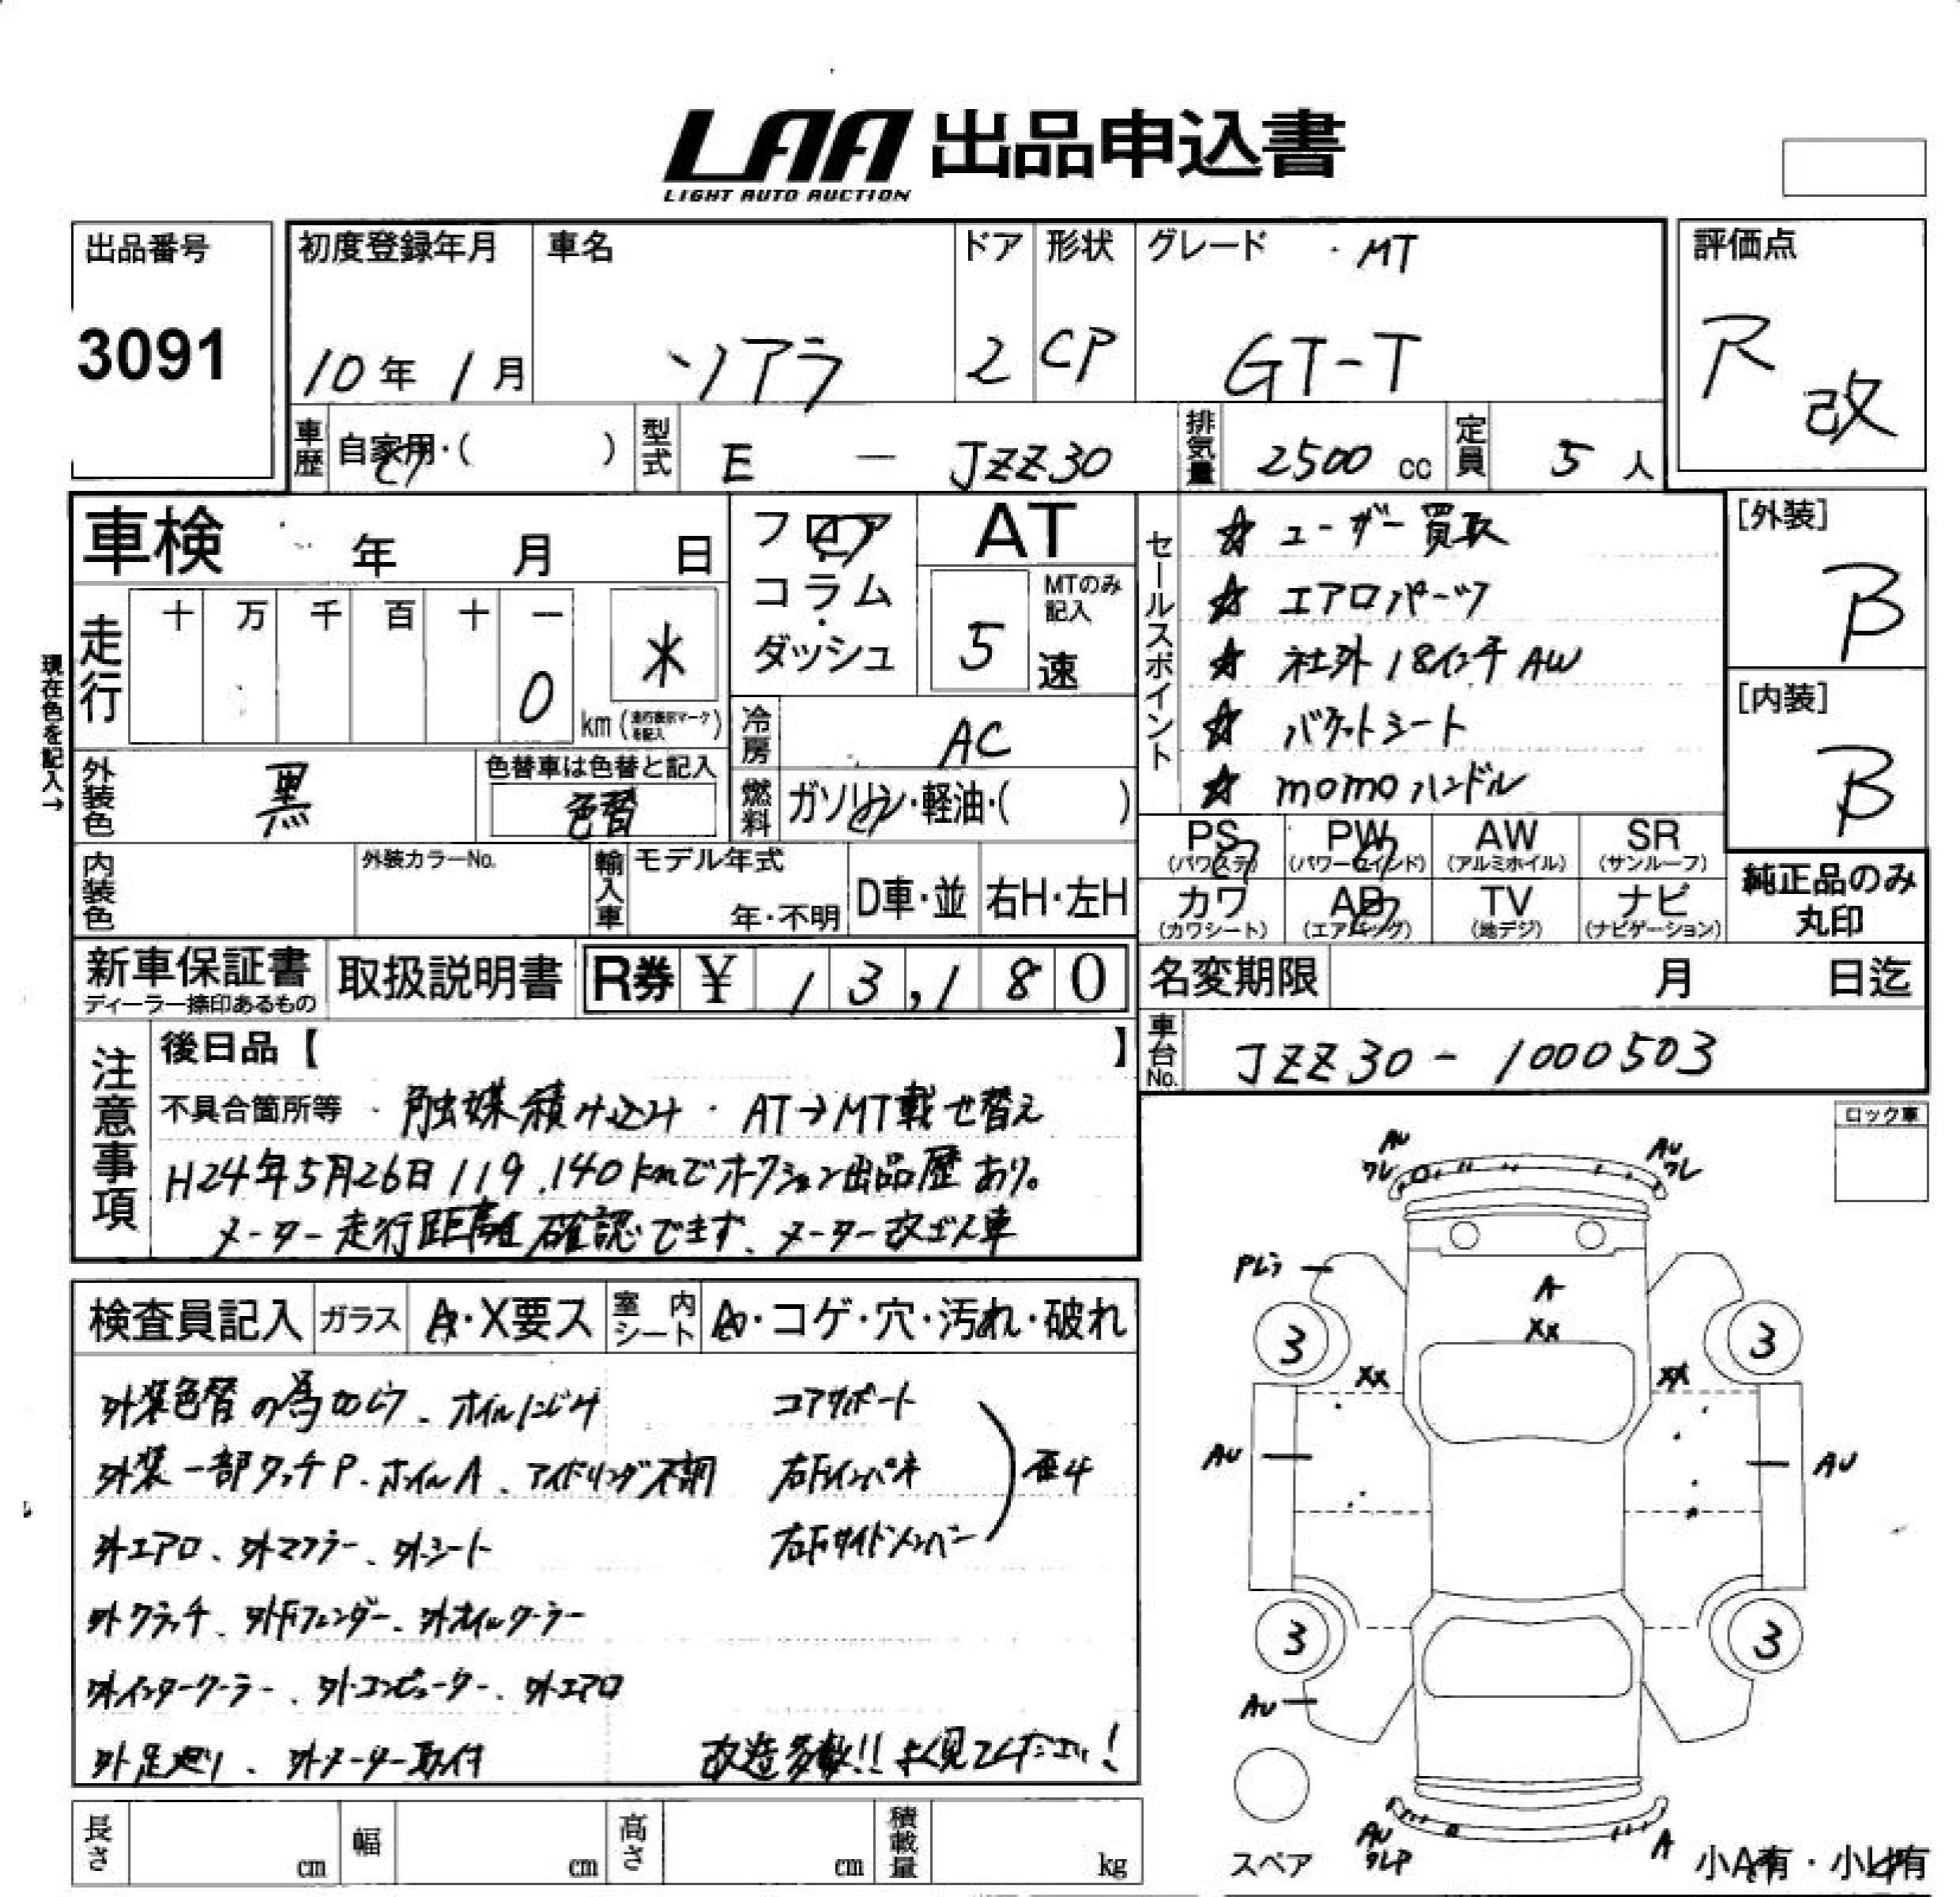 LAA 出品申込書
LIGHT AUTO AUCTION
出品番号
3091
初度登録年月
10年 1月
車名
ソアラ
ドア
2
形状
CP
グレード ・MT
GT-T
評価点
R
改
車歴 自家用・( )
型式 E — JZZ30
排気量 2500 cc
定員 5 人
車検 年 月 日
フロア
コラム
ダッシュ
AT
5 速
MTのみ記入
走行
十 万 千 百 十 一
0 km
*
(走行表示マークを記入)
現在色を記入→
外装色 黒
色替車は色替と記入
色替
冷房 AC
燃料 ガソリン・軽油・( )
内装色
外装カラーNo.
輸入車
モデル年式
年・不明
D車・並
右H・左H
セールスポイント
☆ ユーザー買取
☆ エアロパーツ
☆ 社外18インチAW
☆ バケットシート
☆ momoハンドル
[外装]
B
[内装]
B
PS (パワステ)
PW (パワーウインド)
AW (アルミホイル)
SR (サンルーフ)
カワ (カワシート)
AB (エアバッグ)
TV (地デジ)
ナビ (ナビゲーション)
純正品のみ
丸印
新車保証書
ディーラー捺印あるもの
取扱説明書
R券 ¥ 13,180
名変期限 月 日迄
車台No. JZZ30-1000503
注意事項
後日品【 】
不具合箇所等 ・触媒積み込み・AT→MT載せ替え
H24年5月26日 119,140kmでオークション出品歴あり。
メーター走行距離確認できず、メーター改ざん車
ロック車
検査員記入
ガラス A・X要ス
室内シート ・コゲ・穴・汚れ・破れ
外装色替の為
オイルにじみ
コアサポート
外装一部タッチP、ホイルA、アイドリング不調
右Fインパネ
歪み
外エアロ、外マフラー、外シート
右Fサイドメンバー
外クラッチ、外Fフェンダー、外オイルクーラー
外インタークーラー、外コンピューター、外エアロ
外足廻り、外メーター取付
改造多数!!よく見てください!
AU
ワレ
AU
ワレ
A
XX
3
3
XX
XX
AU
AU
3
3
AU
スペア
AU
ワレP
A
小A有・小U有
長さ cm
幅 cm
高さ cm
積載量 kg